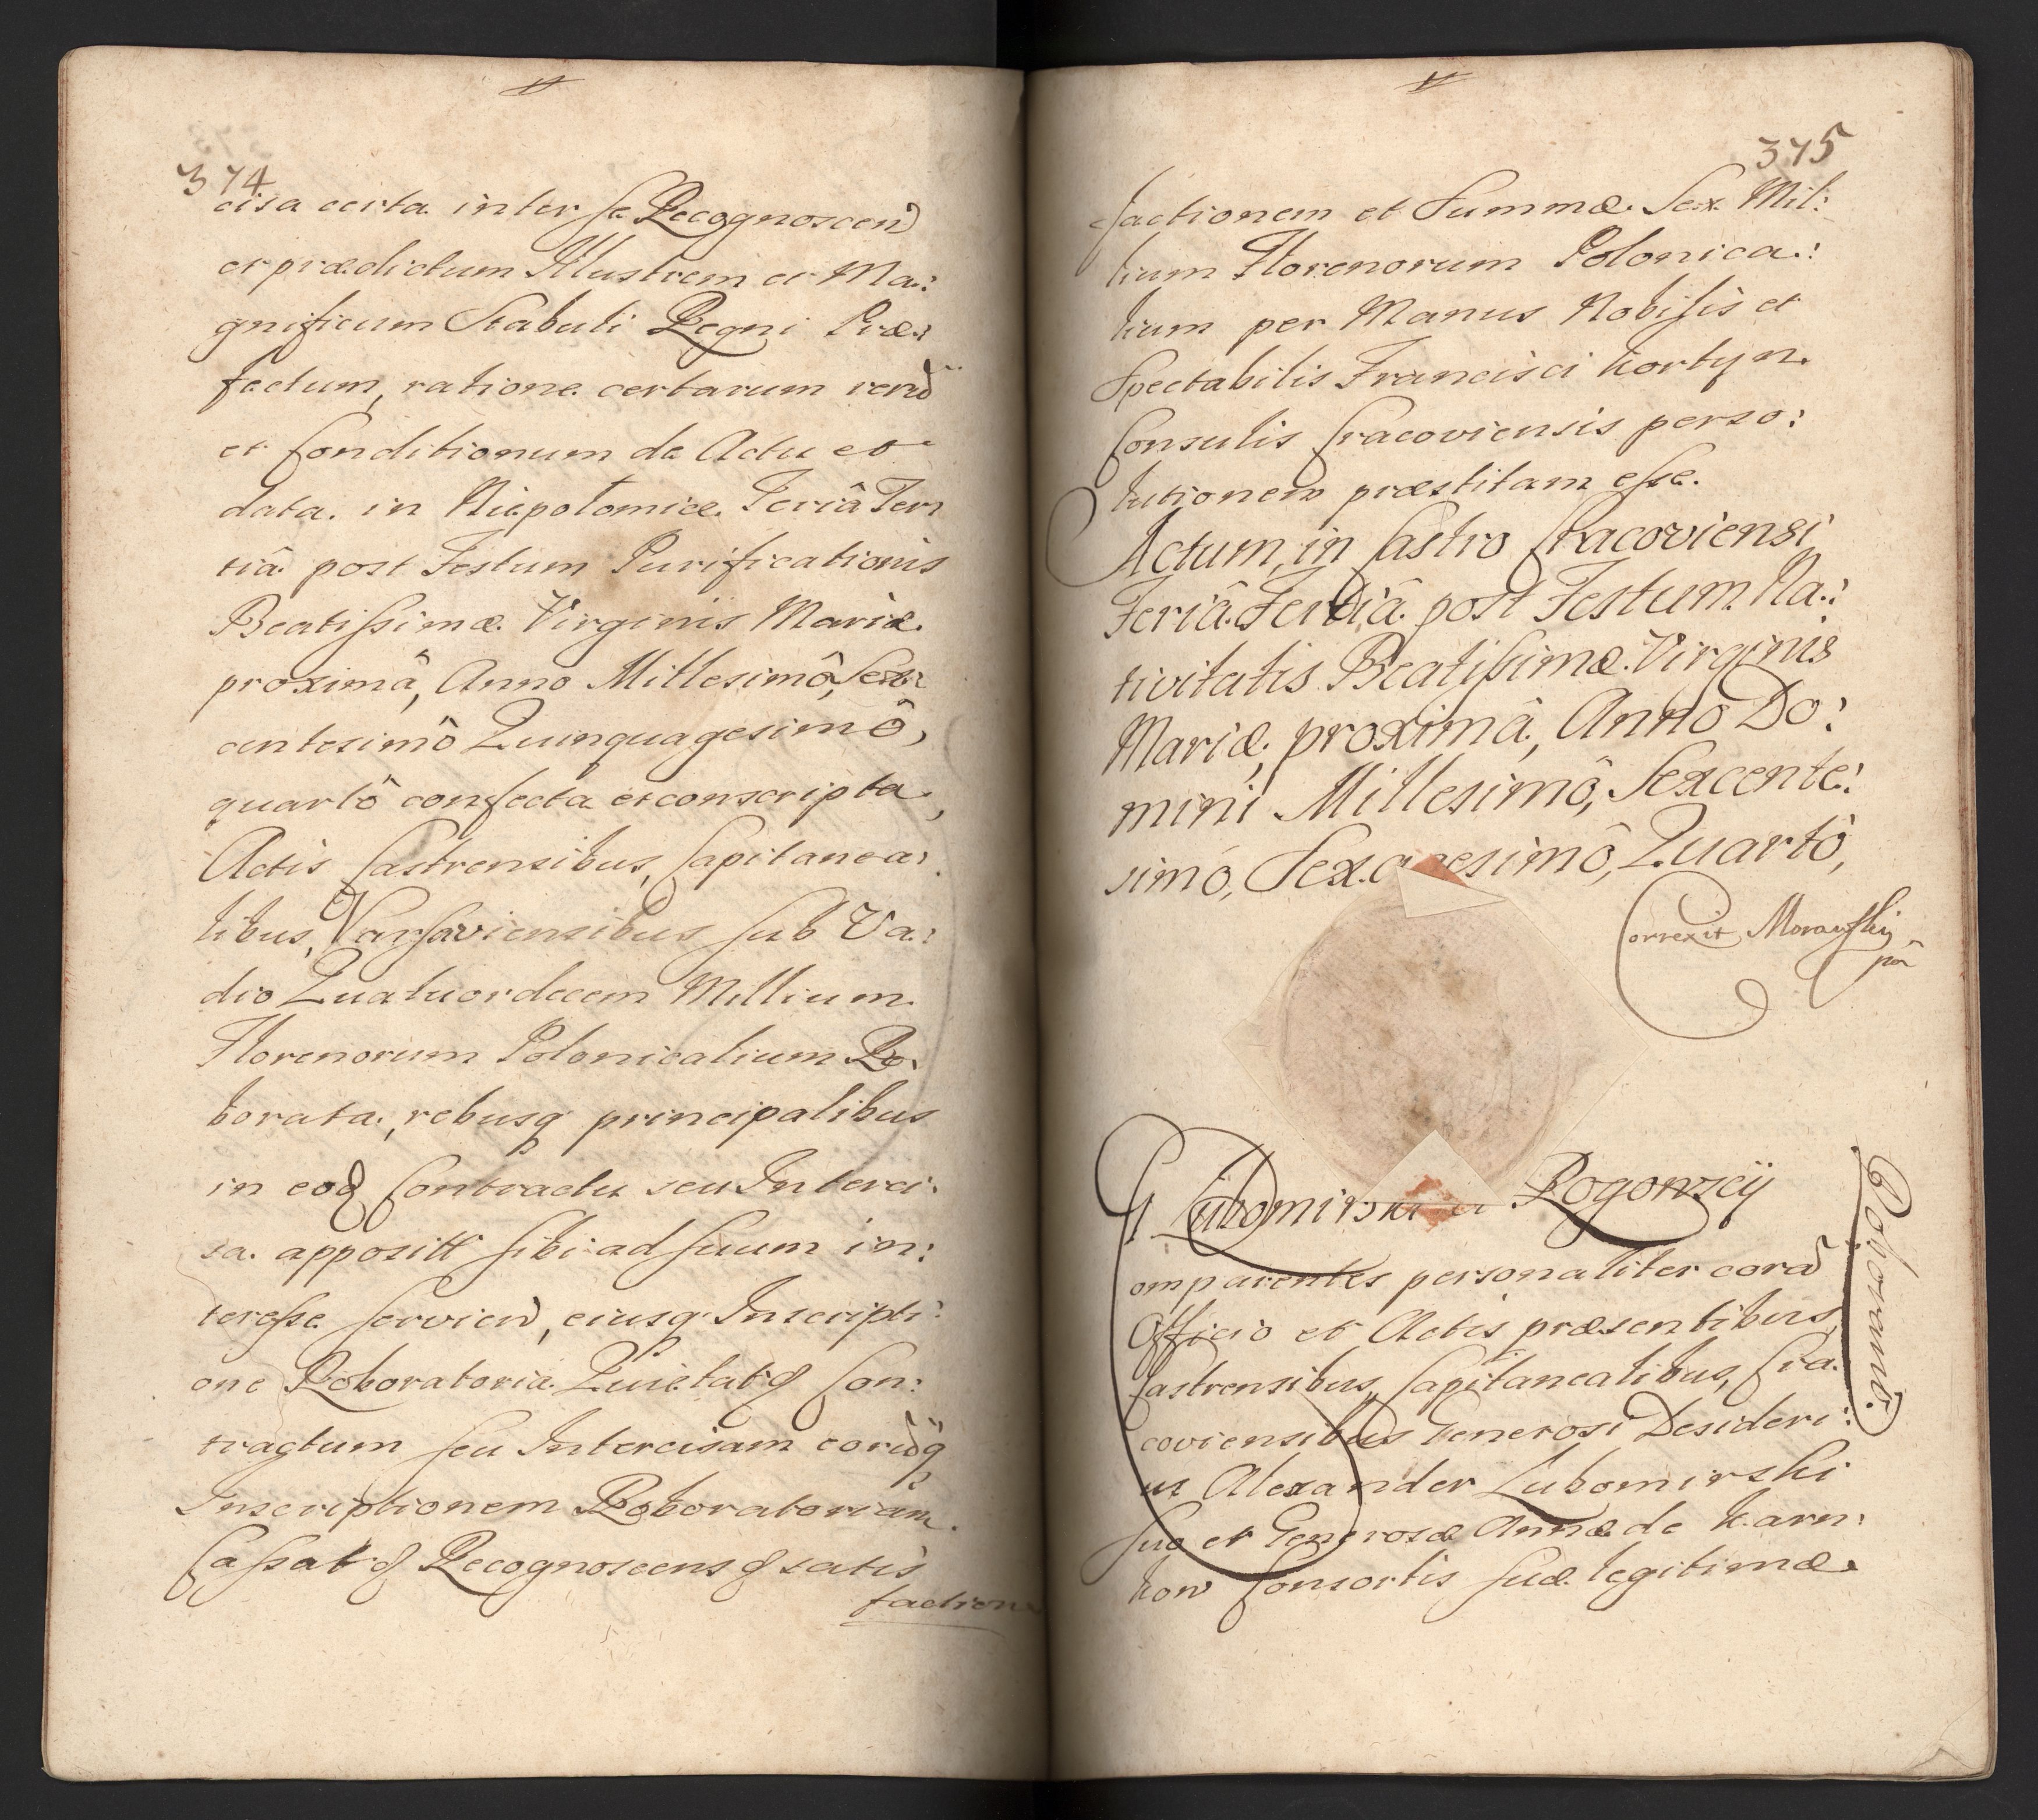 374
cisa certa inter se Recognoscend
et prædictum Illustrem et Ma:
gnificum Stabuli Regni Præ:
fectum, ratione certarum rerud
et Conditionum de Actu et
data in Niepolomice Feriâ Ter:
tiâ post Festum Purificationis
Beatissimæ Virginis Mariæ
proximâ, Anno Millesimô, Sex:
centesimô Quinquagesimô,
quartô confecta et conscripta,
Actis Castrensibus, Capitanea:
libus, Varsaviensibus sub Va:
dio Quatuordecem Millium
Florenorum Polonicalium Ro:
borata, rebusq principalibus
in eod Contractu seu Interci:
sa apposit sibi ad suum in:
teresse serviend, eiusq Inscripti:
one Roboratoria Quietat Con:
tractum seu Intercisam eorudq
Inscriptionem Roboratoriam
Cassat Recognoscens satis
faction
375
factionem et Summæ Sex Mil:
lium Florenorum Polonica:
lium per Manus Nobilis et
Spectabilis Francisci Cortyn
Consulis Cracoviensis perso:
lutionem præstitam esse.
Actum, in Castro Cracoviensi
Feriâ Tertiâ post Festum Na:
tivitatis Beatissimæ Virginis
Mariæ, proximâ, Anno Do:
mini Millesimô, Sexcente:
simô, Sexagesimô, Quartô,
Correxit Morawskij
G Lubomirski et Rogowscij
Roboramô.
Comparentes personaliter corad
Officio et Actis præsentibus,
Castrensibus, Capitanealibus, Cra:
coviensibus Generosi Desideri:
us Alexander Lubomirski
suo et Generosæ Annæ de Karn:
kow Consortis suæ legitimæ